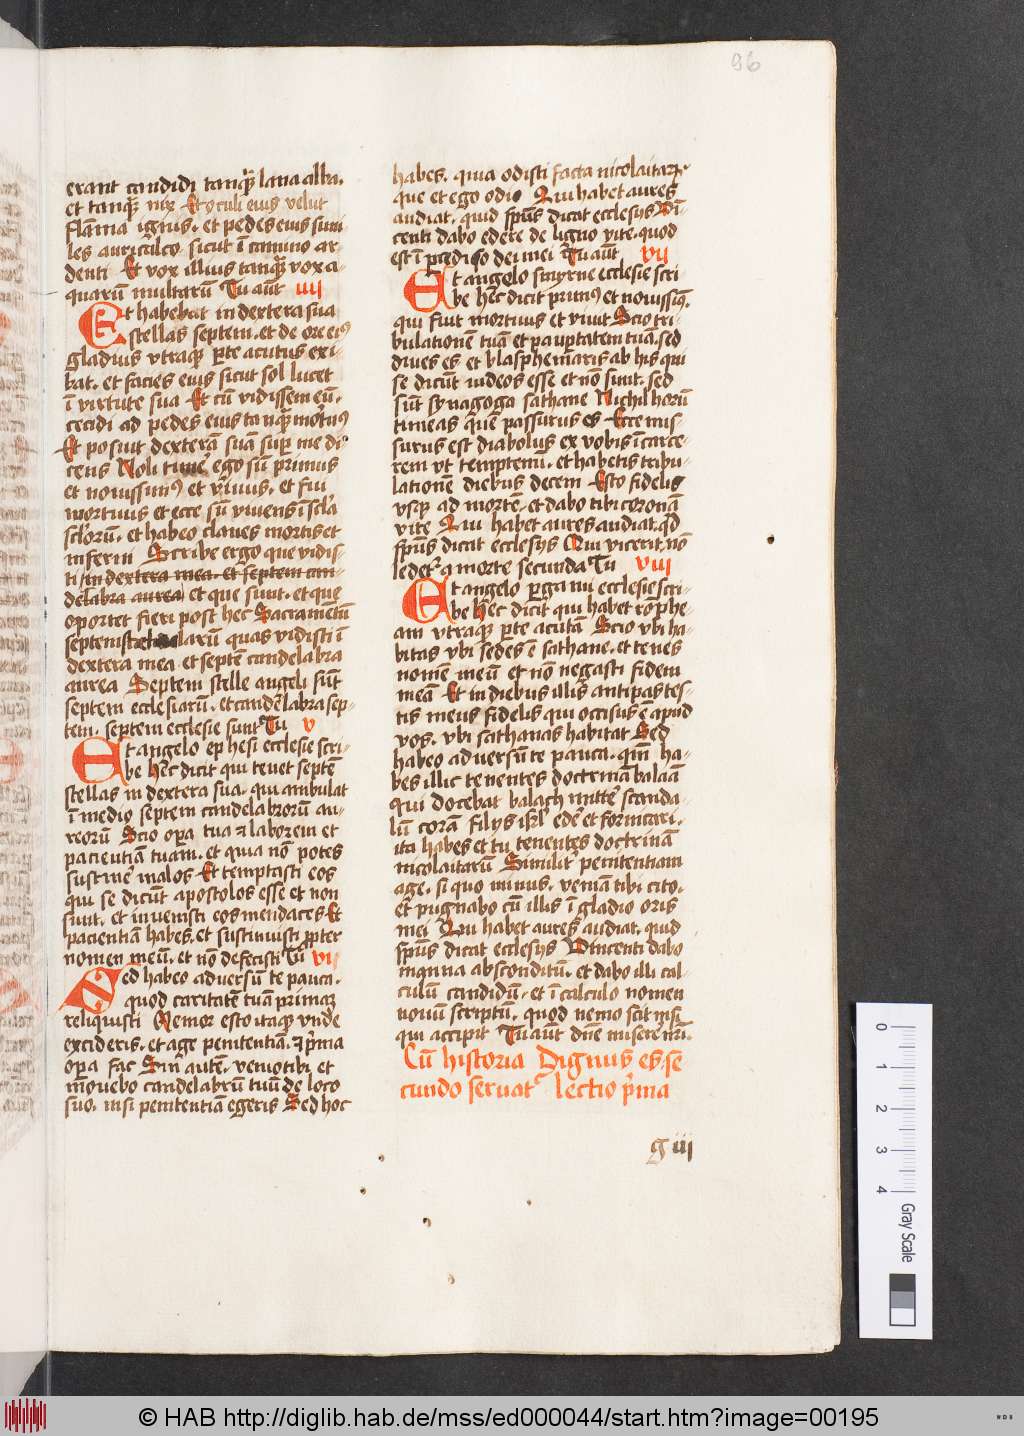 96
erant candidi tanq̄ lana alba.
et tanq̄ nix Et oculi eius velut
flāma ignis. et pedes eius simi
les auricalco sicut ī camino ar
denti Et vox illius tanq̄ vox a-
quarū multarū Tu aūt iiij
Et habebat in dextera sua
stellas septem. et de ore eiꝰ
gladius vtraqꝫ pͣte acutus exi-
bat. et facies eius sicut sol lucet
ī virtute sua Et cū vidissem eū.
cecidi ad pedes eius tanq̄ mortuꝰ
Et posuit dexterā suā sup̄ me di
cens Noli timē ego sū primus
et nouissimꝰ et viuus. et fui
mortuus et ecce sū viuens ī scl̄a
scl̄orū. et habeo claues mortis et
inferni Scribe ergo que vidis-
ti in dextera mea. et septem can-
delabra aurea et que sunt. et que
oportet fieri post hec Sacramētū
septem stellarū quas vidisti ī
dextera mea et septē candelabra
aurea Septem stelle angeli sūt
septem ecclesiarū. et candelabra sep-
tem. septem ecclesie sunt Tu v
Et angelo ephesi ecclesie scri-
be Hec dicit qui tenet septē
stellas in dextera sua. qui ambulat
ī medio septem candelabrorū au-
reorū Scio opa tua ⁊ laborem et
pacientiā tuam. et quia nō potes
sustinē malos Et temptasti eos
qui se dicūt apostolos esse et non
sunt. et inuenisti eos mendaces Et
pacientiā habes. et sustinuisti pp̄ter
nomen meū. et nō defecisti Tu vi
Sed habeo aduersū te pauca.
quod caritatē tuā primaꝫ
reliquisti Memor esto itaqꝫ vnde
excideris. et age penitentiā. ⁊ p̄ma
opa fac Sin autē. venio tibi et
mouebo candelabrū tuū de loco
suo. nisi penitentiā egeris Sed hoc
habes. quia odisti facta nicolaitarꝝ
que et ego odi Qui habet aures
audiat. quid sp̄us dicat ecclesijs Vī-
centi dabo edere de ligno vite. quod
est ī paradiso dei mei Tu aūt vij
Et angelo smyrne ecclesie scri
be Hec dicit primꝰ et nouissiꝰ.
qui fuit mortuus et viuit Scio tri-
bulationē tuā et paupertatem tuā. sed
diues es et blasphemaris ab his qui
se dicūt iudeos esse et nō sunt. sed
sūt synagoga sathane Nichil horū
timeas quē passurus es Ecce mis
surus est diabolus ex vobis ī carce-
rem vt temptemī. et habetis tribu-
lationē diebus decem Esto fidelis
vsqꝫ ad mortē. et dabo tibi coronā
vite Qui habet aures audiat. qd
sp̄us dicat ecclesijs Qui vicerit. nō
ledet a morte secunda Tu viij
Et angelo pergami ecclesie scri-
be Hec dicit qui habet rōphe-
am vtraqꝫ pͣte acutā Scio vbi ha-
bitas vbi sedes ē sathane. et tenes
nomē meū et nō negasti fidem
meā Et in diebus illis antipas tes-
tis meus fidelis qui occisus ē apud
vos. vbi sathanas habitat Sed
habeo aduersū te pauca. qm̄ ha-
bes illic tenentes doctrinā balaā
qui docebat balach mittē scanda-
lū corā filijs isrl̄ edē et fornicari.
ita habes et tu tenentes doctrinā
nicolaitarū Similit penitentiam
age. si quo minus. veniā tibi cito.
et pugnabo cū illis ī gladio oris
mei Qui habet aures audiat. quid
sp̄us dicat ecclesijs Vincenti dabo
manna absconditū. et dabo illi cal-
culū candidū. et ī calculo nomen
nouū scriptū. quod nemo scit nisi
qui accipit Tu aūt dn̄e miserē nr̄i.
Cū historia Dignus es. se
cundo seruat᷑ lectio p̄ma
g iij
0 1 2 3 4 Gray Scale
© HAB http://diglib.hab.de/mss/ed000044/start.htm?image=00195